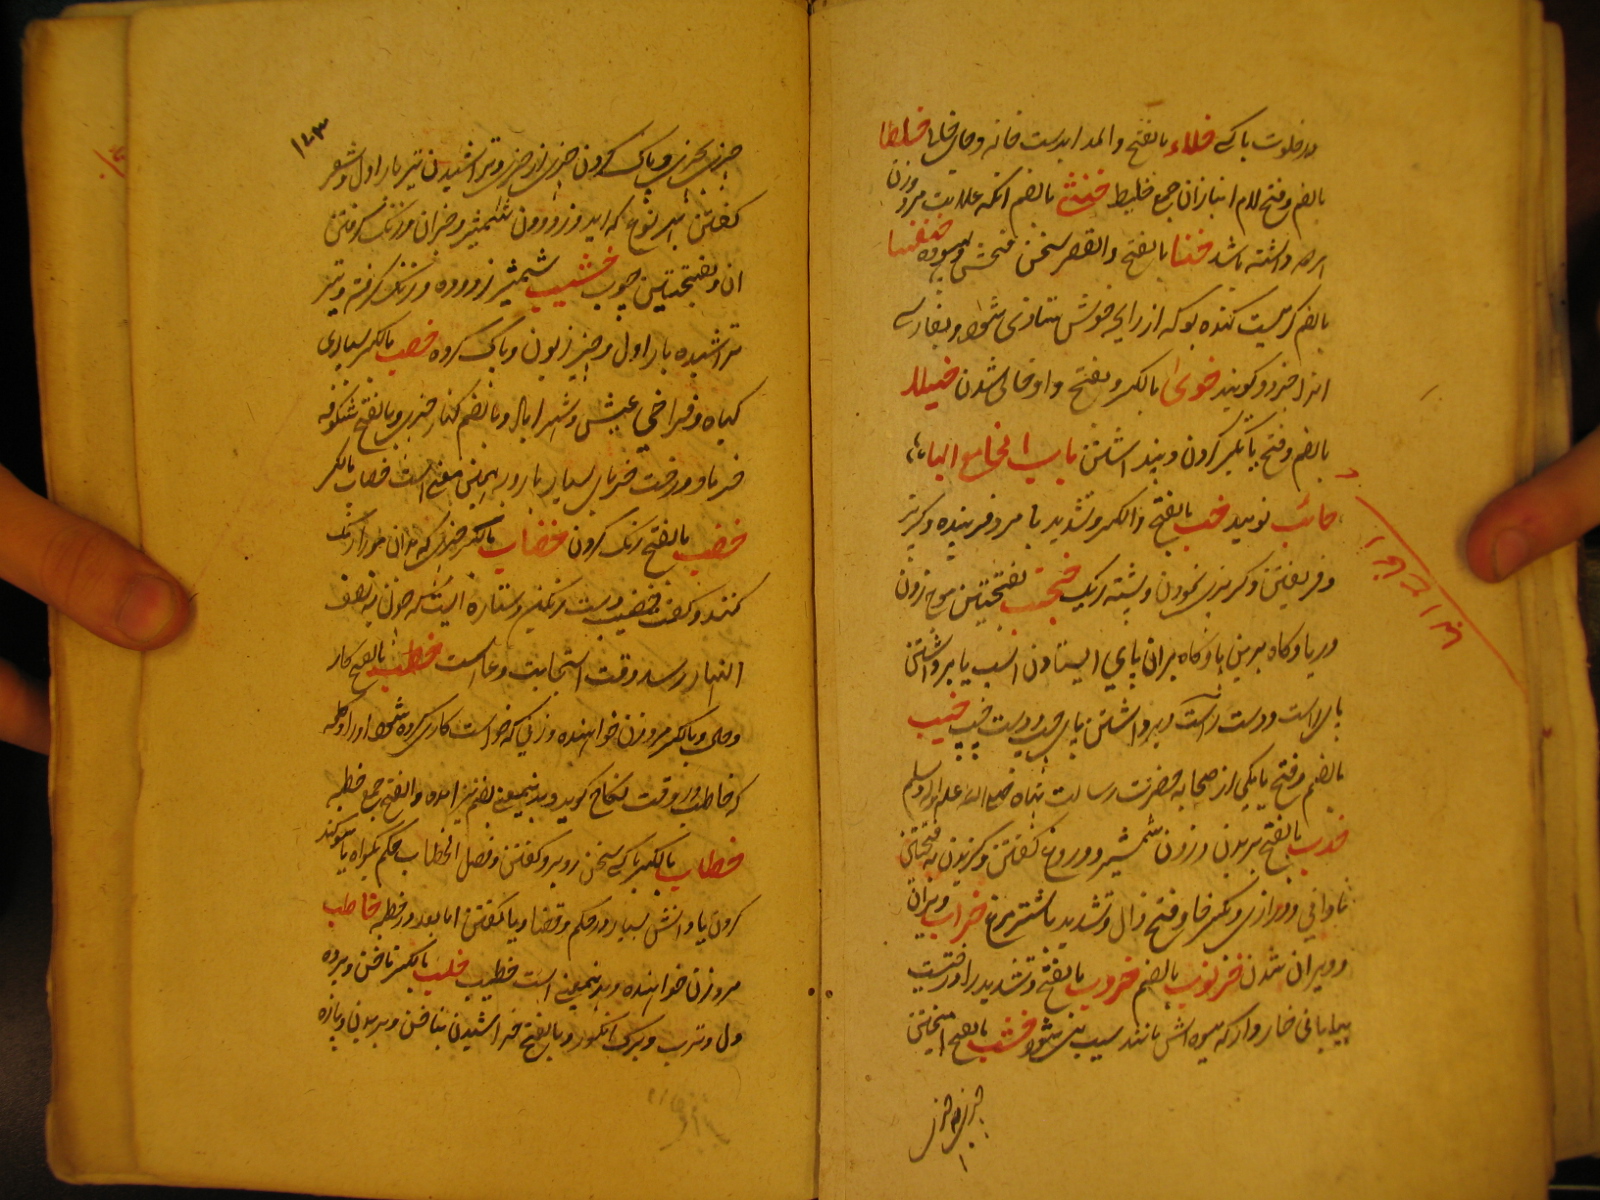 در خلوت با کسے خلاء بالفتح والمد ابدست خانه و جای خالی خلطا
بالضم و فتح لام انبازان جمع خلیط خنثی بالضم انکه علامت مرد و زن
هر دو داشته باشد خنا بالفتح والقصر سخن فحش و بیهوده خنفسا
بالضم کرمیست کنده بو که از رایحه خوش متاذی شود و بفارسی
انرا خبزدو کویند خوی بالکسر و بفتح واو خالی شدن خیلا
بالضم و فتح یا تکبر کردن و پنداشتن باب الخا مع البا
خائب نومید خب بالفتح والکسر و تشدید با مرد فریبنده و کربز
و فریفتن و کربزی نمودن و پشته ریک خبب بفتحتین موج زدن
دریا و کاه برین پا و کاه بران پای ایستادن اسب یا برداشتن
پای راست و دست راست و برداشتن پای چپ و دست چپ خبیب
بالضم و فتح با یکی از صحابه حضرت رسالت پناه صلی الله علیه واله وسلم
خدب بالفتح بریدن و زدن شمشیر و دروغ کفتن و کزیدن و بفتحتین
نادانی و درازی و بکسر خا و فتح دال و تشدید با شتر مرغ خراب ویران
و ویران شدن خرنوب بالضم خروب بالفتح و تشدید را درختیست
بیابانی خاردار که میوه اش مانند سیب می شود خشب بالفتح امیختن
چیزی بچیزی
۱۴۳
چیزی بچیزی و پاک کردن چیزی از چیزی و تراشیدن تیر بار اول و شعر
کفتن بهر نوع که اید و زدودن شمشیر و خزان و زنک کرفتن
ان و بفتحتین چوب خشیب شمشیر زدوده و زنک کرفته و تیر
تراشیده بار اول و چیز زبون و پاک کرده خصب بالکسر بسیاری
کیاه و فراخی عیش و شهر اباد و بالضم کنار چیزی و بالفتح شکوفه
خرما و درخت خرمای بسیار بار و بهمین معنے است خصاب بالکسر
خضب بالفتح رنک کردن خضاب بالکسر چیزی که بدان مو را رنک
کنند و کف خضیب دست رنکین و ستاره ایست که چون به نصف
النهار رسد وقت استجابت دعا است خطب بالفتح کار
و حال و بالکسر مرد زن خواهنده و زنی که خواستکاری کرده شود او را و کلمه
که خاطب در وقت نکاح کوید و بدینمعنے بضم نیز امده و بالفتح جمع خطبه
خطاب بالکسر با کسے سخن روبرو کفتن و فصل الخطاب حکم بکواه یا سوکند
کردن یا دانش بسیار در حکم و قضا و یا کفتن اما بعد در خطبه خاطب
مرد زن خواهنده و بدینمعنے است خطیب خلب بالکسر ناخن و پرده
دل و ترب و برک انکور و بالفتح خراشیدن بناخن و بریدن و پاره